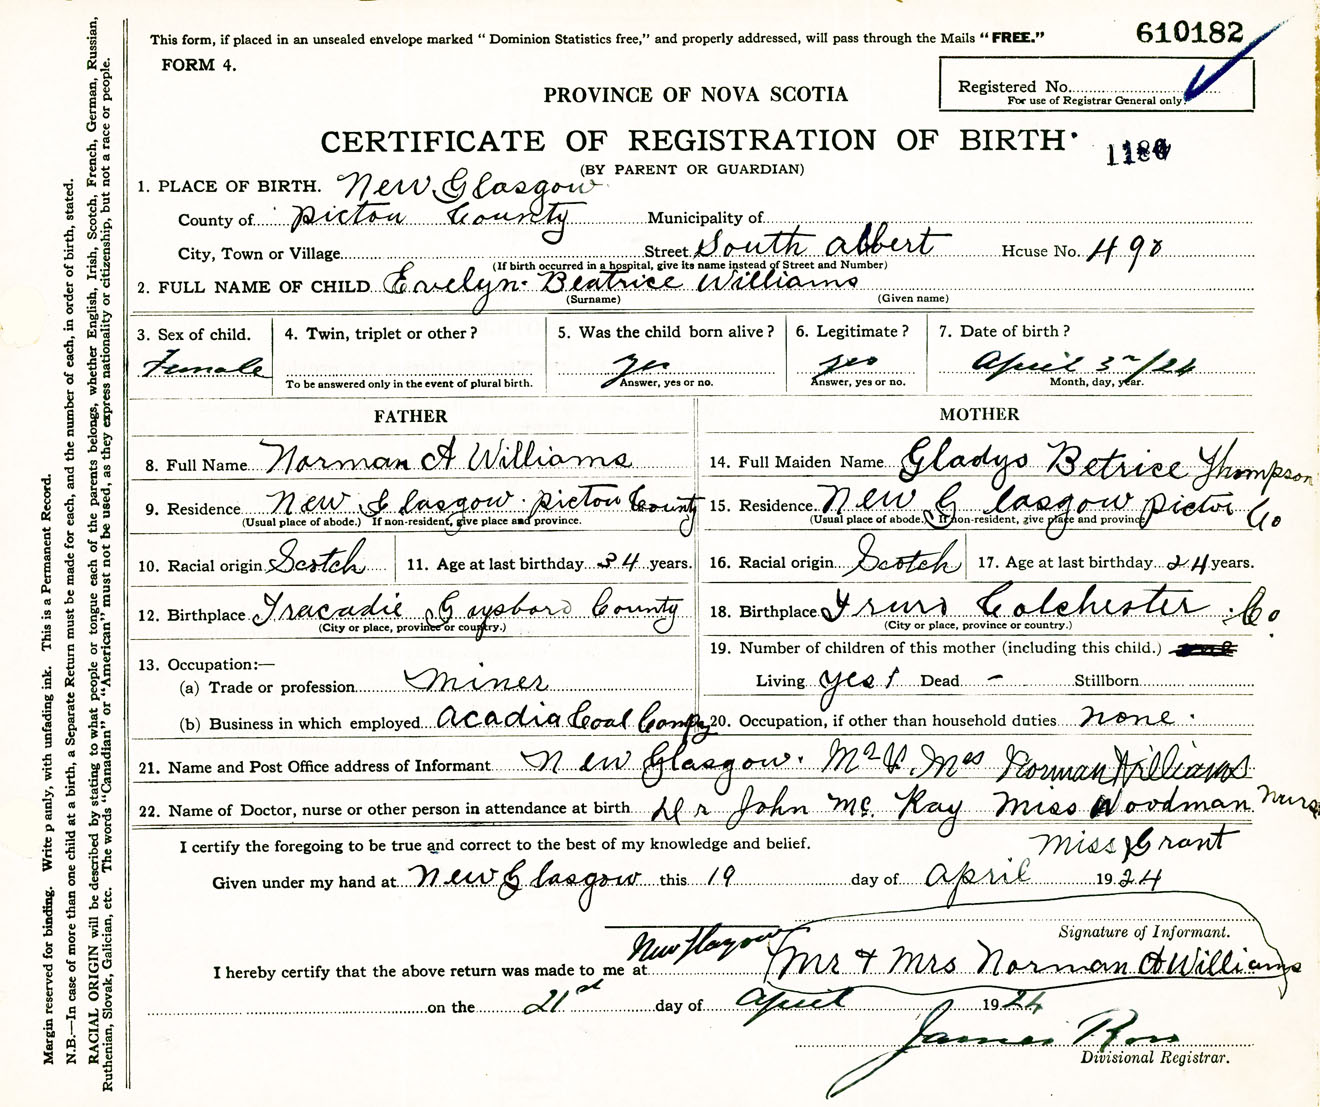 This form, if placed in an unsealed envelope marked "Dominion Statistics free," and properly addressed, will pass through the Mails "FREE."
610182
FORM 4.
Registered No.
For use of Registrar General only.
PROVINCE OF NOVA SCOTIA
CERTIFICATE OF REGISTRATION OF BIRTH
(BY PARENT OR GUARDIAN)
1. PLACE OF BIRTH. New Glasgow
County of Pictou County Municipality of
City, Town or Village Street South Albert House No. 490
(If birth occurred in a hospital, give its name instead of Street and Number)
2. FULL NAME OF CHILD Evelyn Beatrice Williams
(Surname) (Given name)
3. Sex of child. 4. Twin, triplet or other? 5. Was the child born alive? 6. Legitimate? 7. Date of birth?
Female yes yes April 3rd/24
To be answered only in the event of plural birth. Answer, yes or no. Answer, yes or no. Month, day, year.
FATHER MOTHER
8. Full Name Norman A Williams 14. Full Maiden Name Gladys Betrice Thompson
9. Residence New Glasgow. Pictou County 15. Residence New Glasgow Pictou Co
(Usual place of abode.) If non-resident, give place and province. (Usual place of abode.) If non-resident, give place and province
10. Racial origin Scotch 11. Age at last birthday 34 years. 16. Racial origin Scotch 17. Age at last birthday 24 years.
12. Birthplace Tracadie Guysboro County 18. Birthplace Truro Colchester Co.
(City or place, province or country.) (City or place, province or country.)
13. Occupation:— 19. Number of children of this mother (including this child.)
(a) Trade or profession Miner Living yes 1 Dead - Stillborn
(b) Business in which employed Acadia Coal Compy 20. Occupation, if other than household duties none.
21. Name and Post Office address of Informant New Glasgow. Mr & Mrs Norman Williams
22. Name of Doctor, nurse or other person in attendance at birth Dr John Mc. Kay Miss Woodman Nurse
Miss Grant
I certify the foregoing to be true and correct to the best of my knowledge and belief.
Given under my hand at New Glasgow this 19 day of April 1924
Signature of Informant.
Mr & Mrs Norman A Williams
I hereby certify that the above return was made to me at New Glasgow
on the 21st day of April 1924
James Ross
Divisional Registrar.
Margin reserved for binding. Write plainly, with unfading ink. This is a Permanent Record.
N.B.—In case of more than one child at a birth, a Separate Return must be made for each, and the number of each, in order of birth, stated.
RACIAL ORIGIN will be described by stating to what people or tongue each of the parents belongs, whether English, Irish, Scotch, French, German, Russian,
Ruthenian, Slovak, Galician, etc. The words "Canadian" or "American" must not be used, as they express nationality or citizenship, but not a race or people.